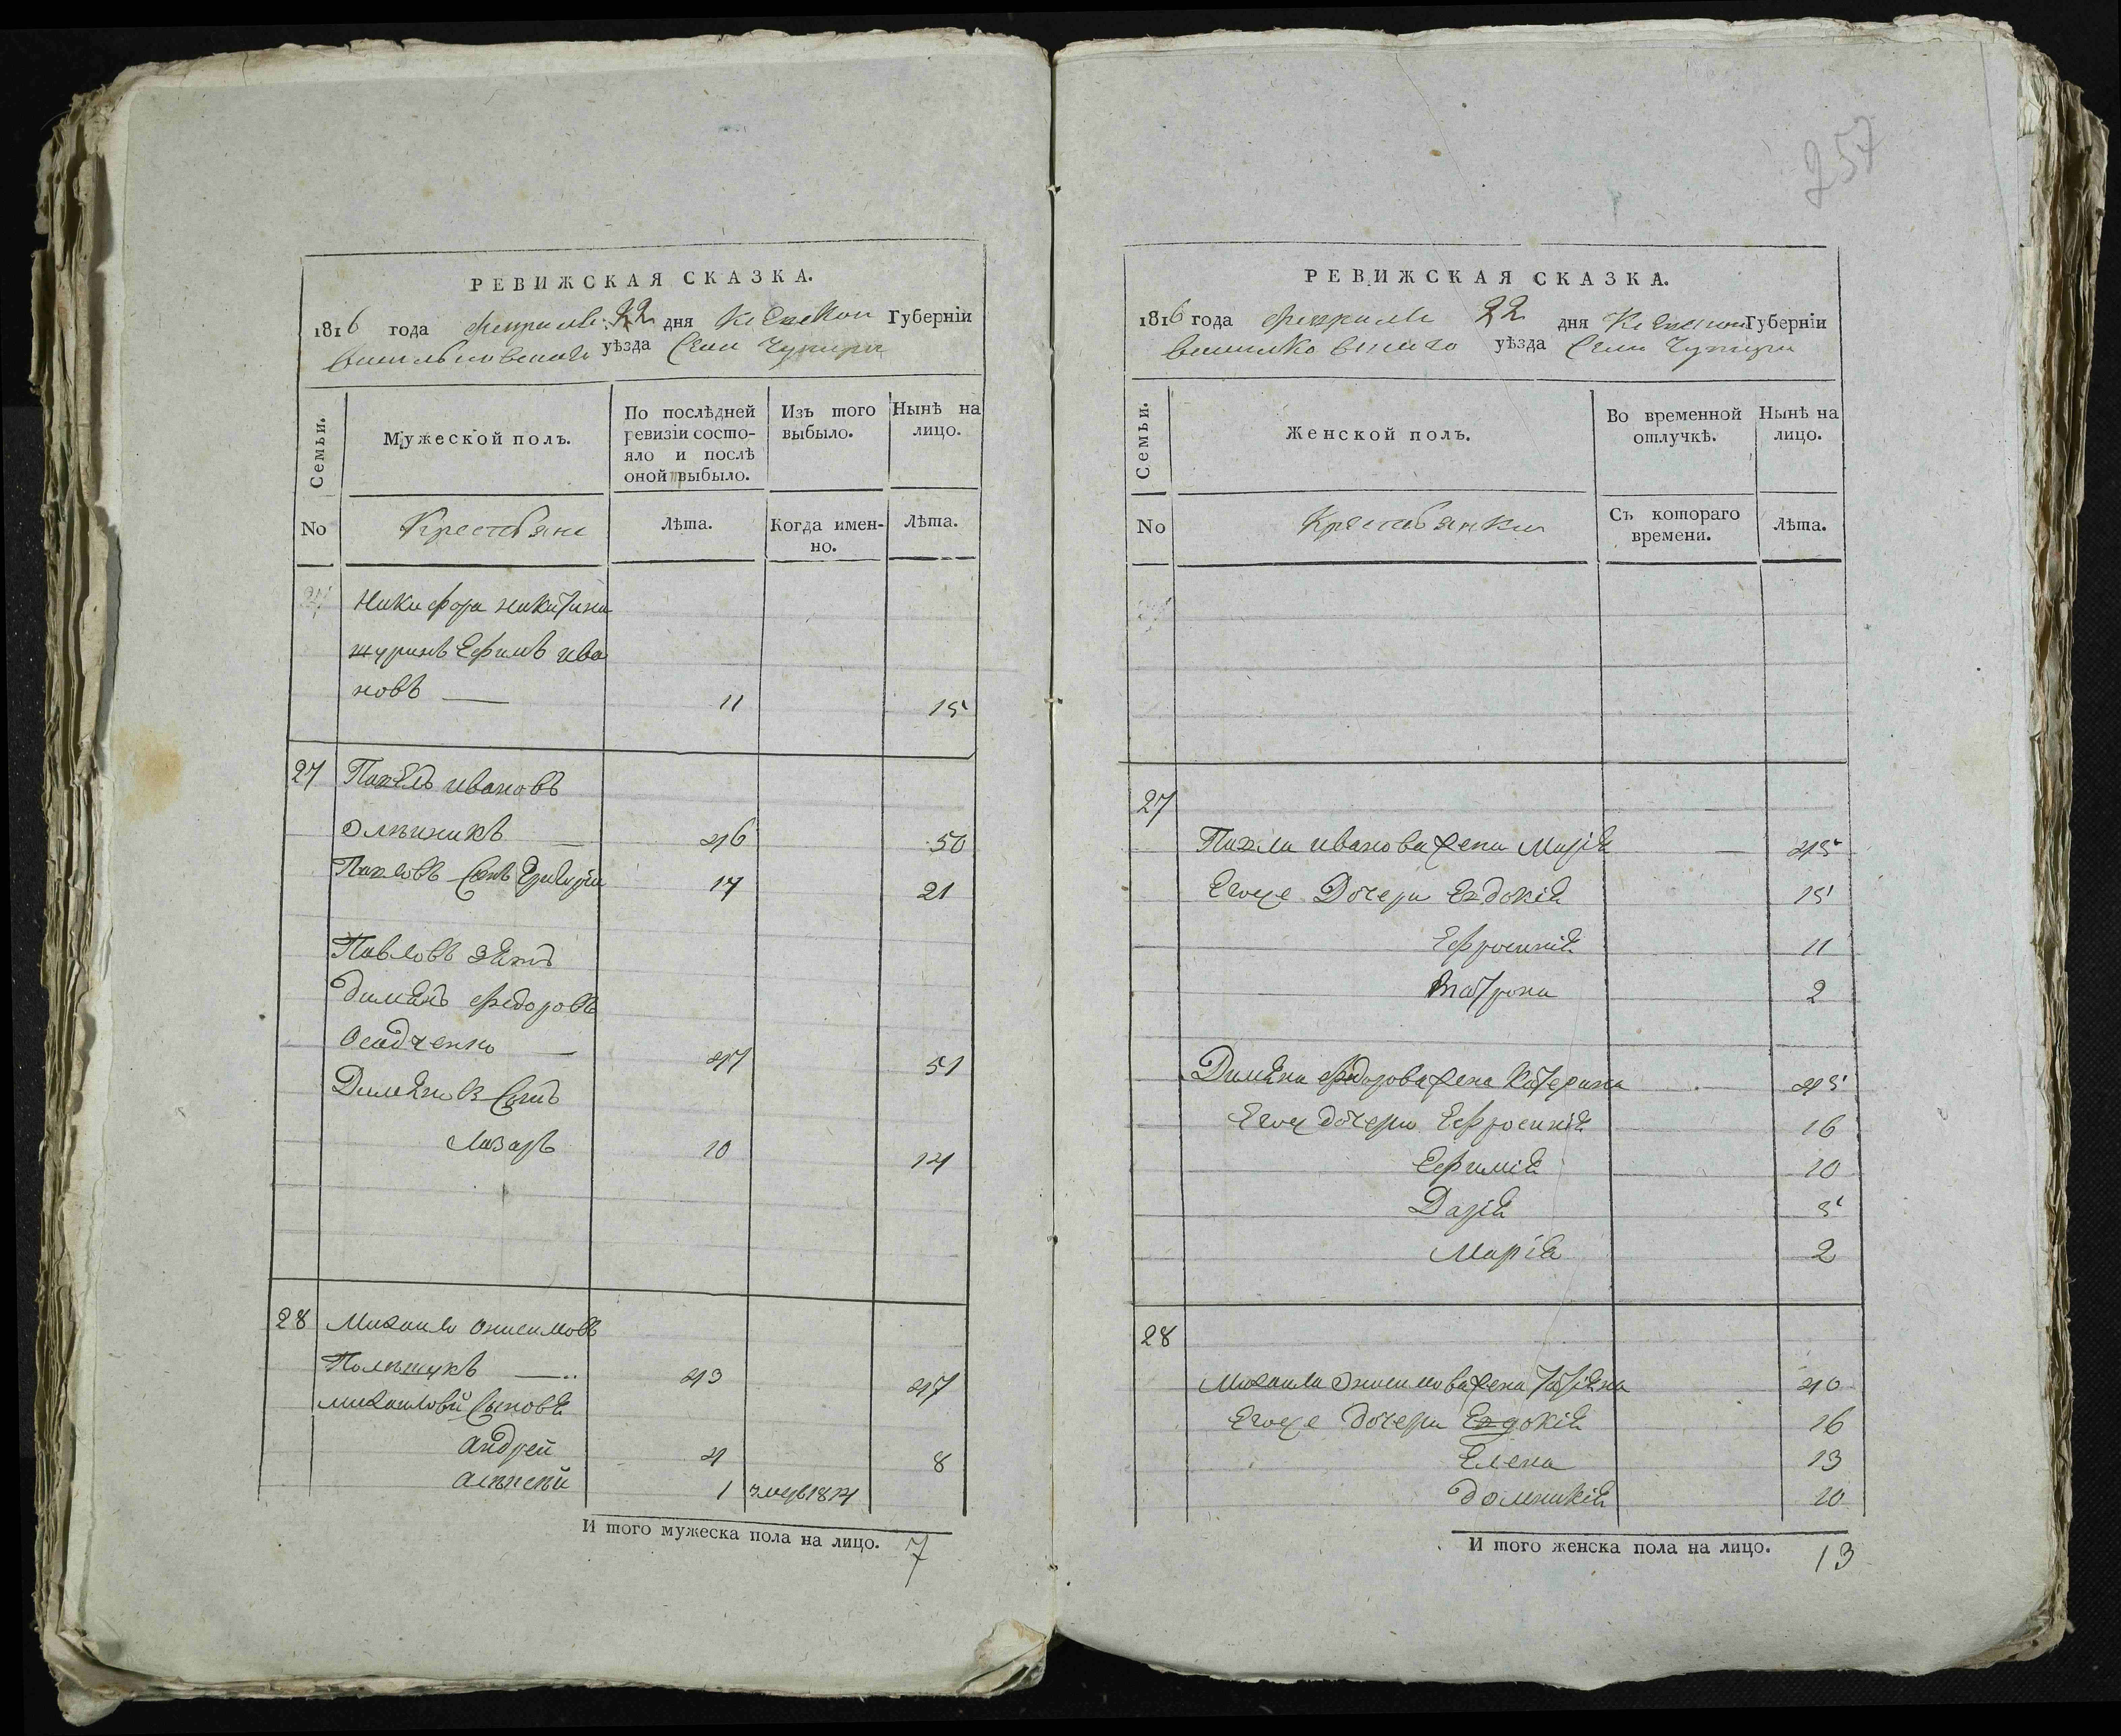 257
РЕВИЖСКАЯ СКАЗКА.
1816 года февраля 22 дня Киевской Губерніи
васильковскаго уѣзда Села Чупиры
Семьи.
Мужеской полъ.
По послѣдней ревизіи состояло и послѣ оной выбыло.
Изъ того выбыло.
Нынѣ на лицо.
No
Крестьяне
Лѣта.
Когда именно.
Лѣта.
Никифора никитина
шуринъ Ефимъ ива
новъ — 11 15
27 Павелъ ивановъ
Олѣиникъ — 46 50
Павловъ Сынъ Григорій 17 21
Павловъ зять
Димянъ федоровъ
Осадченко — 47 51
Димяновъ Сынъ
Лазарь 10 14
28 Михаило онисимовъ
Полѣщукъ — 43 47
михаиловы Сыновя
андрей 4 8
алѣксѣй 1 умеръ 1814
И того мужеска пола на лицо. 7
РЕВИЖСКАЯ СКАЗКА.
1816 года февраля 22 дня Киевской Губерніи
василковскаго уѣзда Села Чупиры
Семьи.
Женской полъ.
Во временной отлучкѣ.
Нынѣ на лицо.
No
Крестьянки
Съ котораго времени.
Лѣта.
27
Павла иванова жена Марія — 45
Егоже Дочери Евдокія 15
Ефросинія 11
Матрона 2
Димяна федорова жена Катерина 45
Егож дочери Ефросинія 16
Ефимія 10
Дарія 5
Марія 2
28
Михаила Онисимова жена Татіяна 40
Егоже дочери Евдокія 16
Елена 13
домникія 10
И того женска пола на лицо. 13